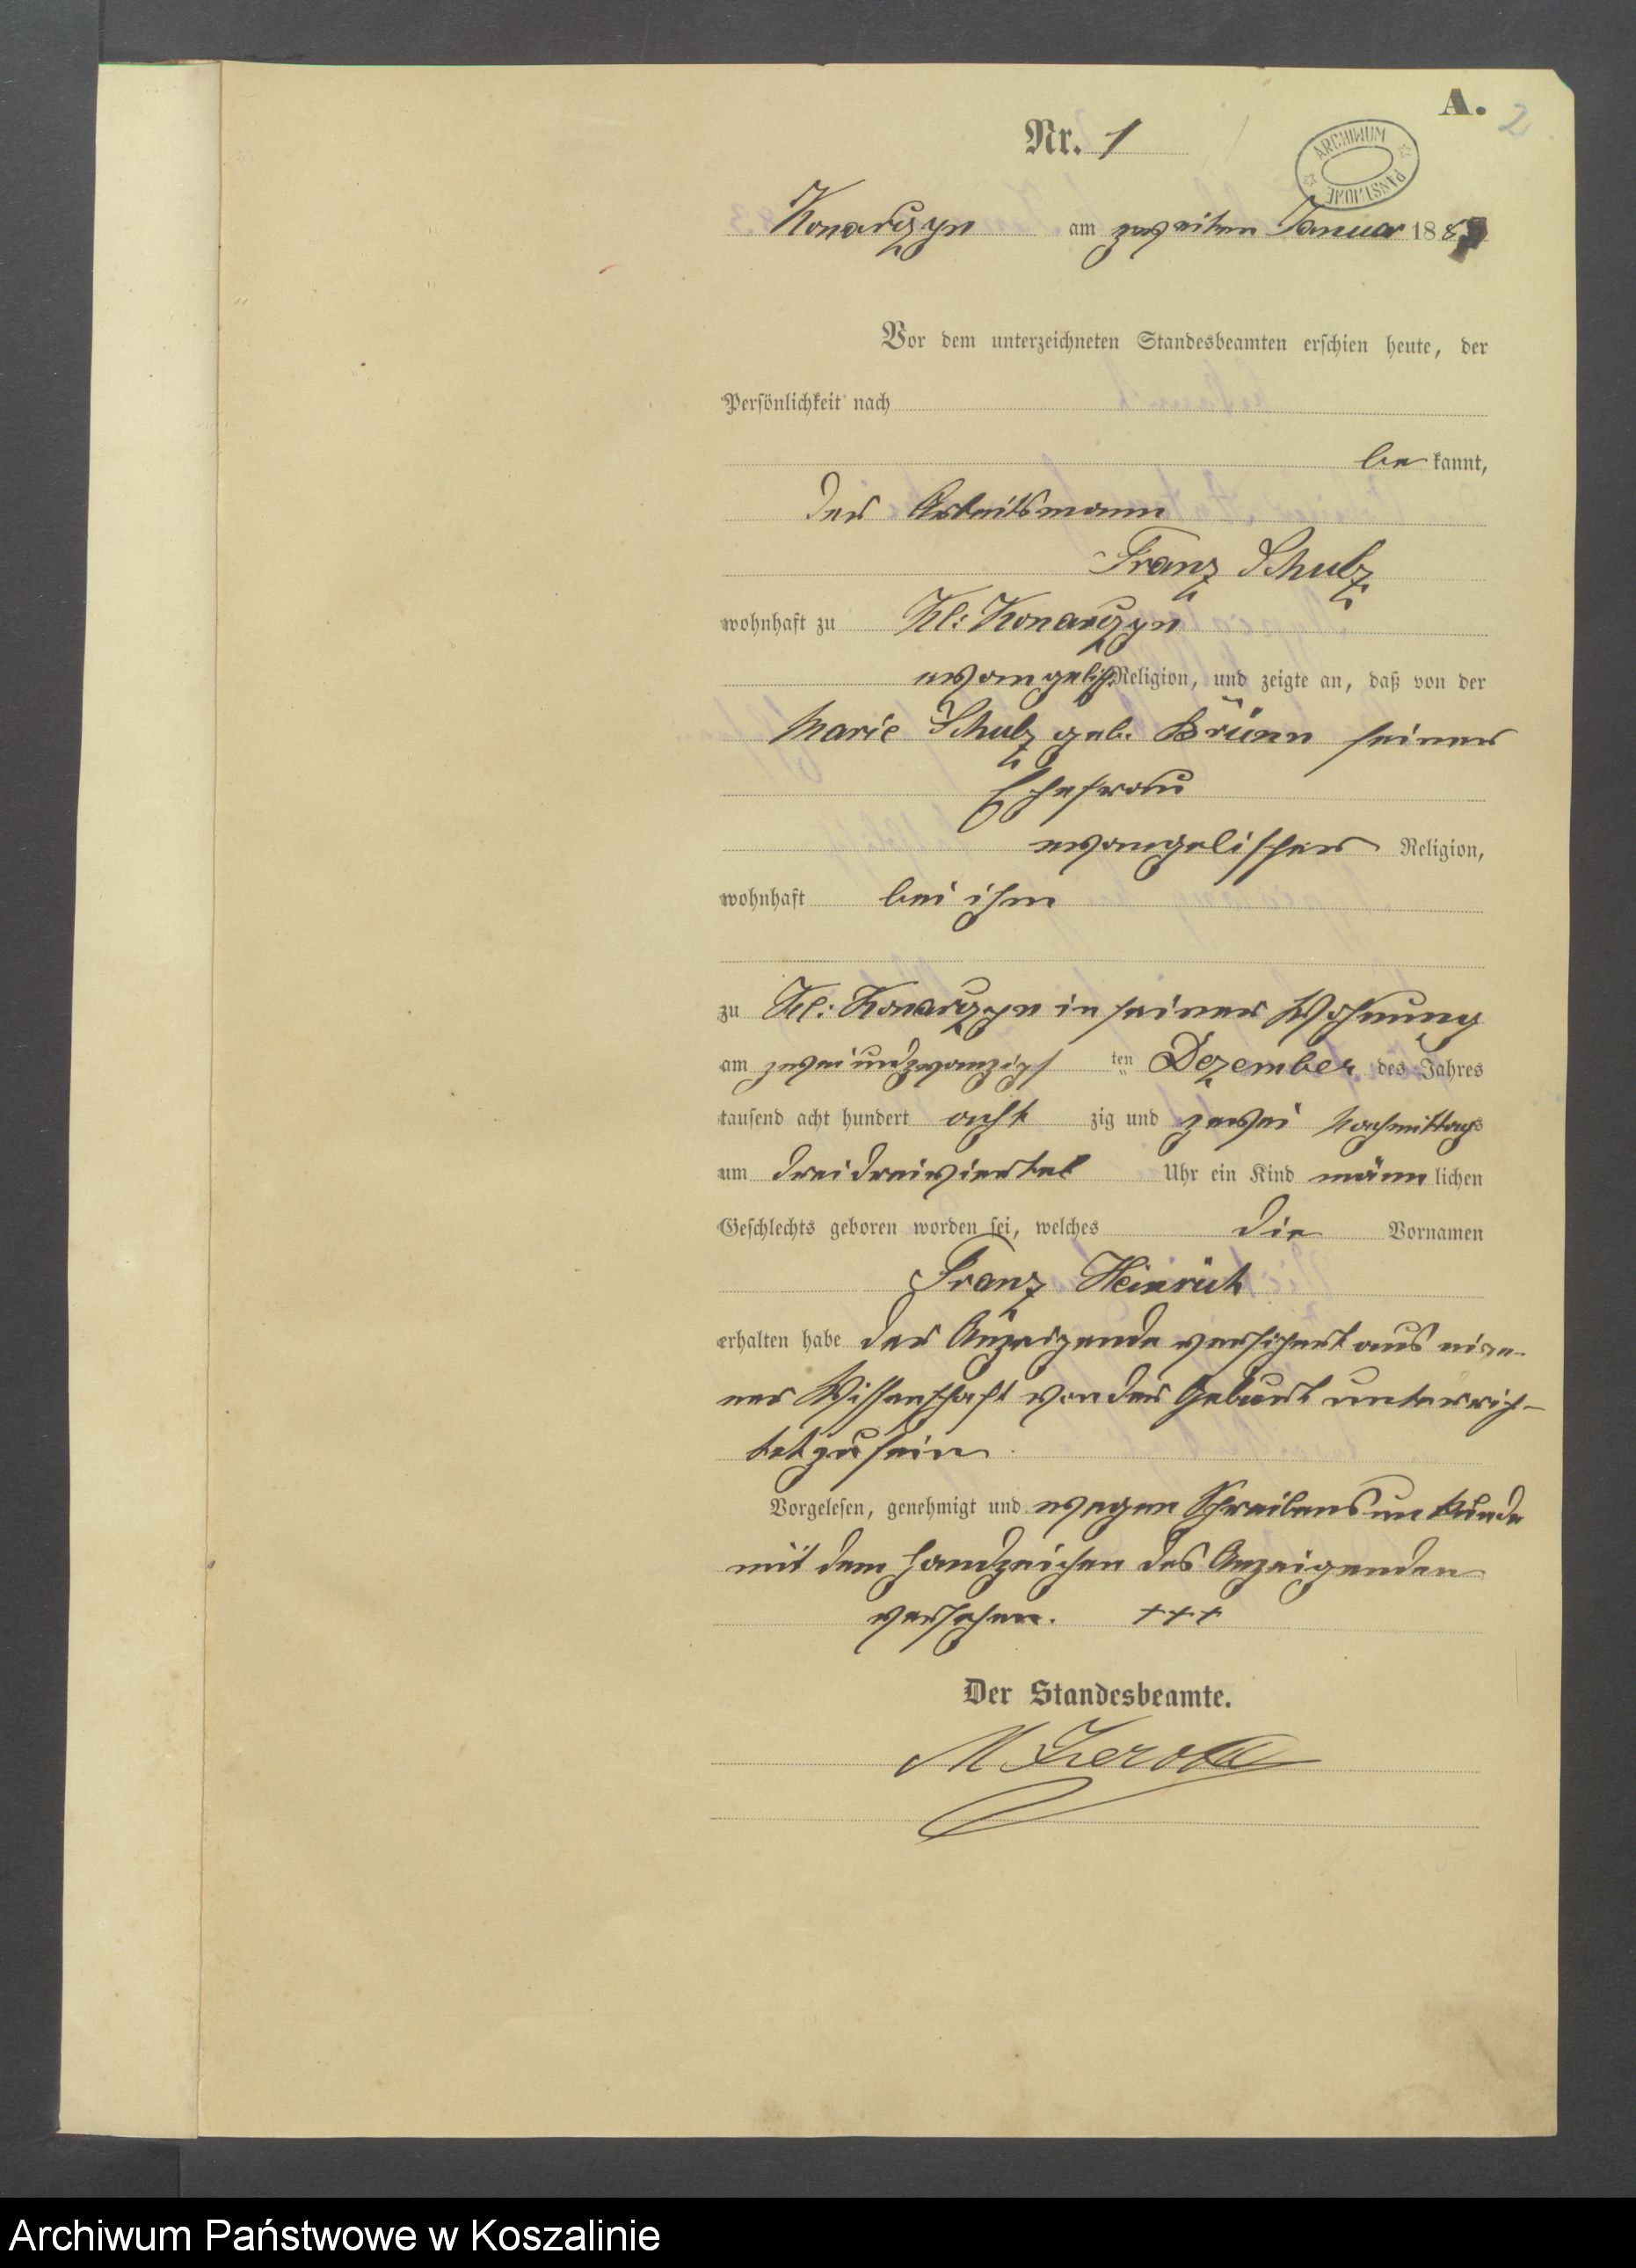 A. 2
Nr. 1
ARCHIWUM PAŃSTWOWE
Konarczyn am zweiten Januar 188
Vor dem unterzeichneten Standesbeamten erschien heute, der
Persönlichkeit nach
be kannt,
der Arbeitsmann
Franz Schulz
wohnhaft zu Kl: Konarczyn
evangelisch. Religion, und zeigte an, daß von der
Marie Schulz geb. Brünn seiner
Ehefrau
evangelischer Religion,
wohnhaft bei ihm
zu Kl: Konarczyn in seiner Wohnung
am zweiundzwanzigs ten Dezember des Jahres
tausend acht hundert acht zig und zwei Nachmittags
um dreidreiviertel Uhr ein Kind männ lichen
Geschlechts geboren worden sei, welches die Vornamen
Franz Heinrich
erhalten habe der Anzeigende versichert aus eige-
ner Wissenschaft von der Geburt unterrich-
tet zu sein
Vorgelesen, genehmigt und wegen Schreibensunkunde
mit dem Handzeichen des Anzeigenden
versehen. +++
Der Standesbeamte.
M
Archiwum Państwowe w Koszalinie